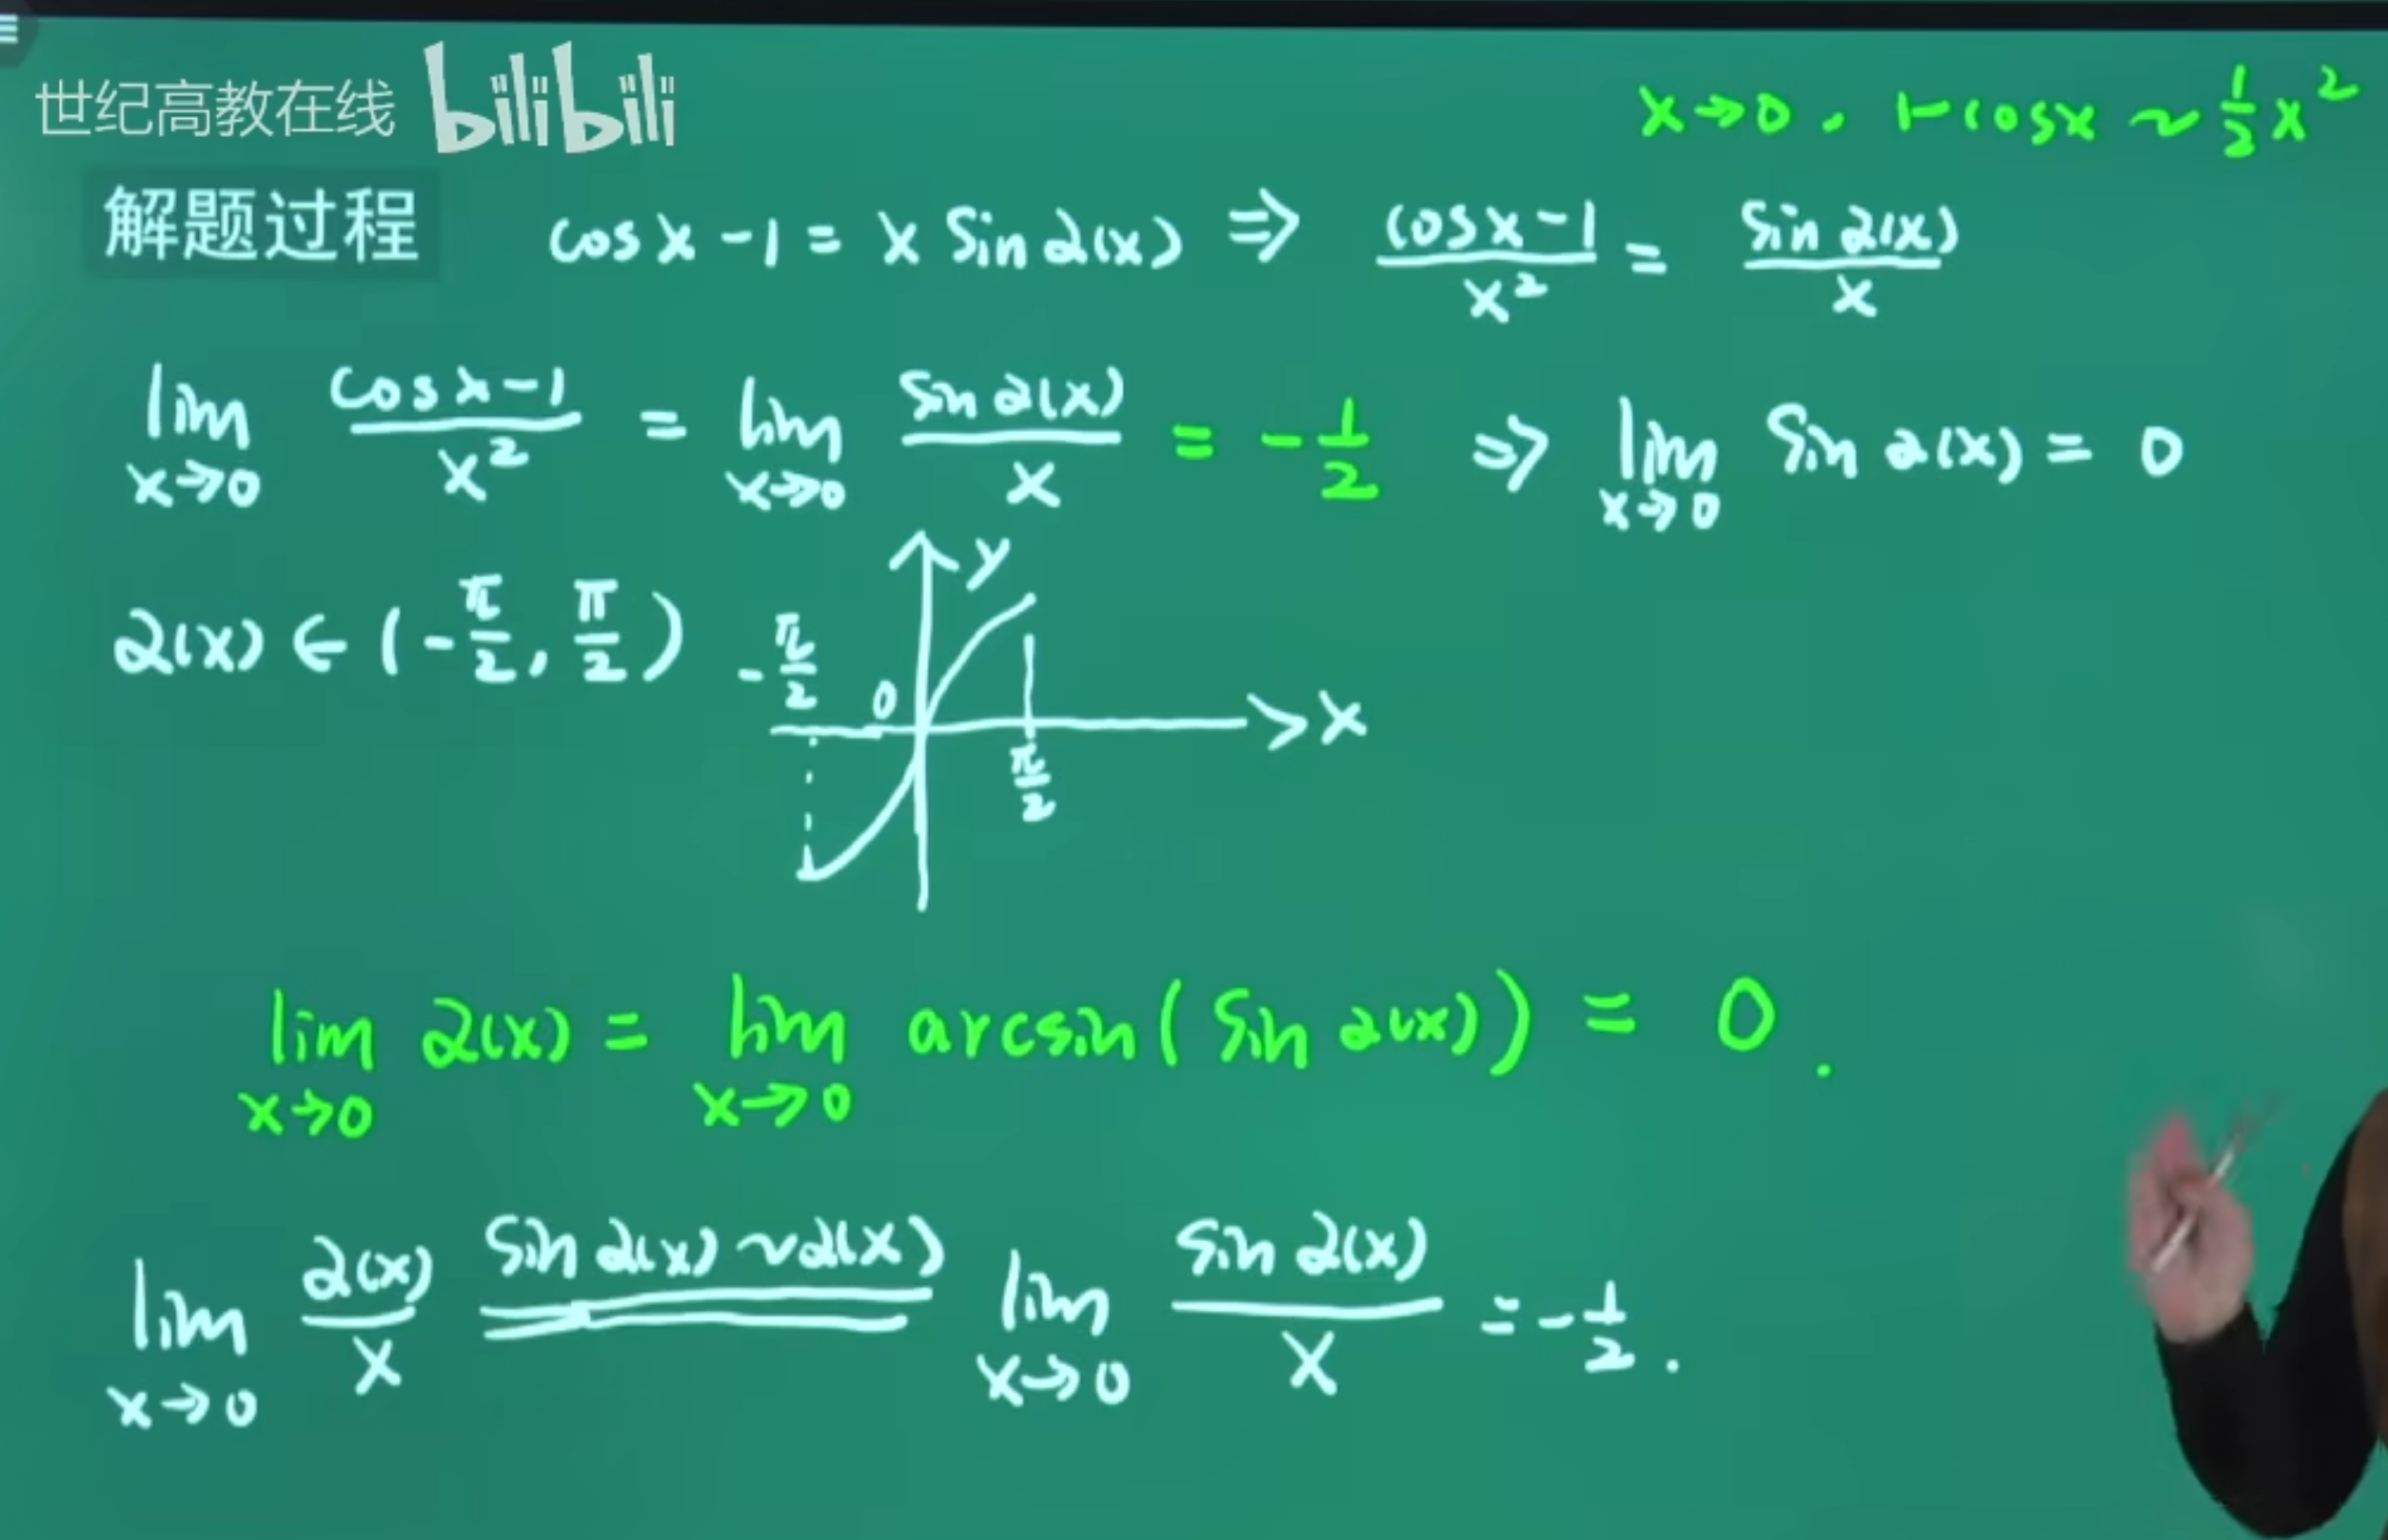 世纪高教在线 bilibili
x→0, 1-cosx ~ 1/2 x²
解题过程 cosx-1 = x sin α(x) ⇒ (cosx-1)/x² = sin α(x)/x
lim x→0 (cosx-1)/x² = lim x→0 sin α(x)/x = -1/2 ⇒ lim x→0 sin α(x) = 0
α(x) ∈ (-π/2, π/2)
y
-π/2 0 x
π/2
lim x→0 α(x) = lim x→0 arcsin(sin α(x)) = 0.
lim x→0 α(x)/x sin α(x) ~ α(x) lim x→0 sin α(x)/x = -1/2.